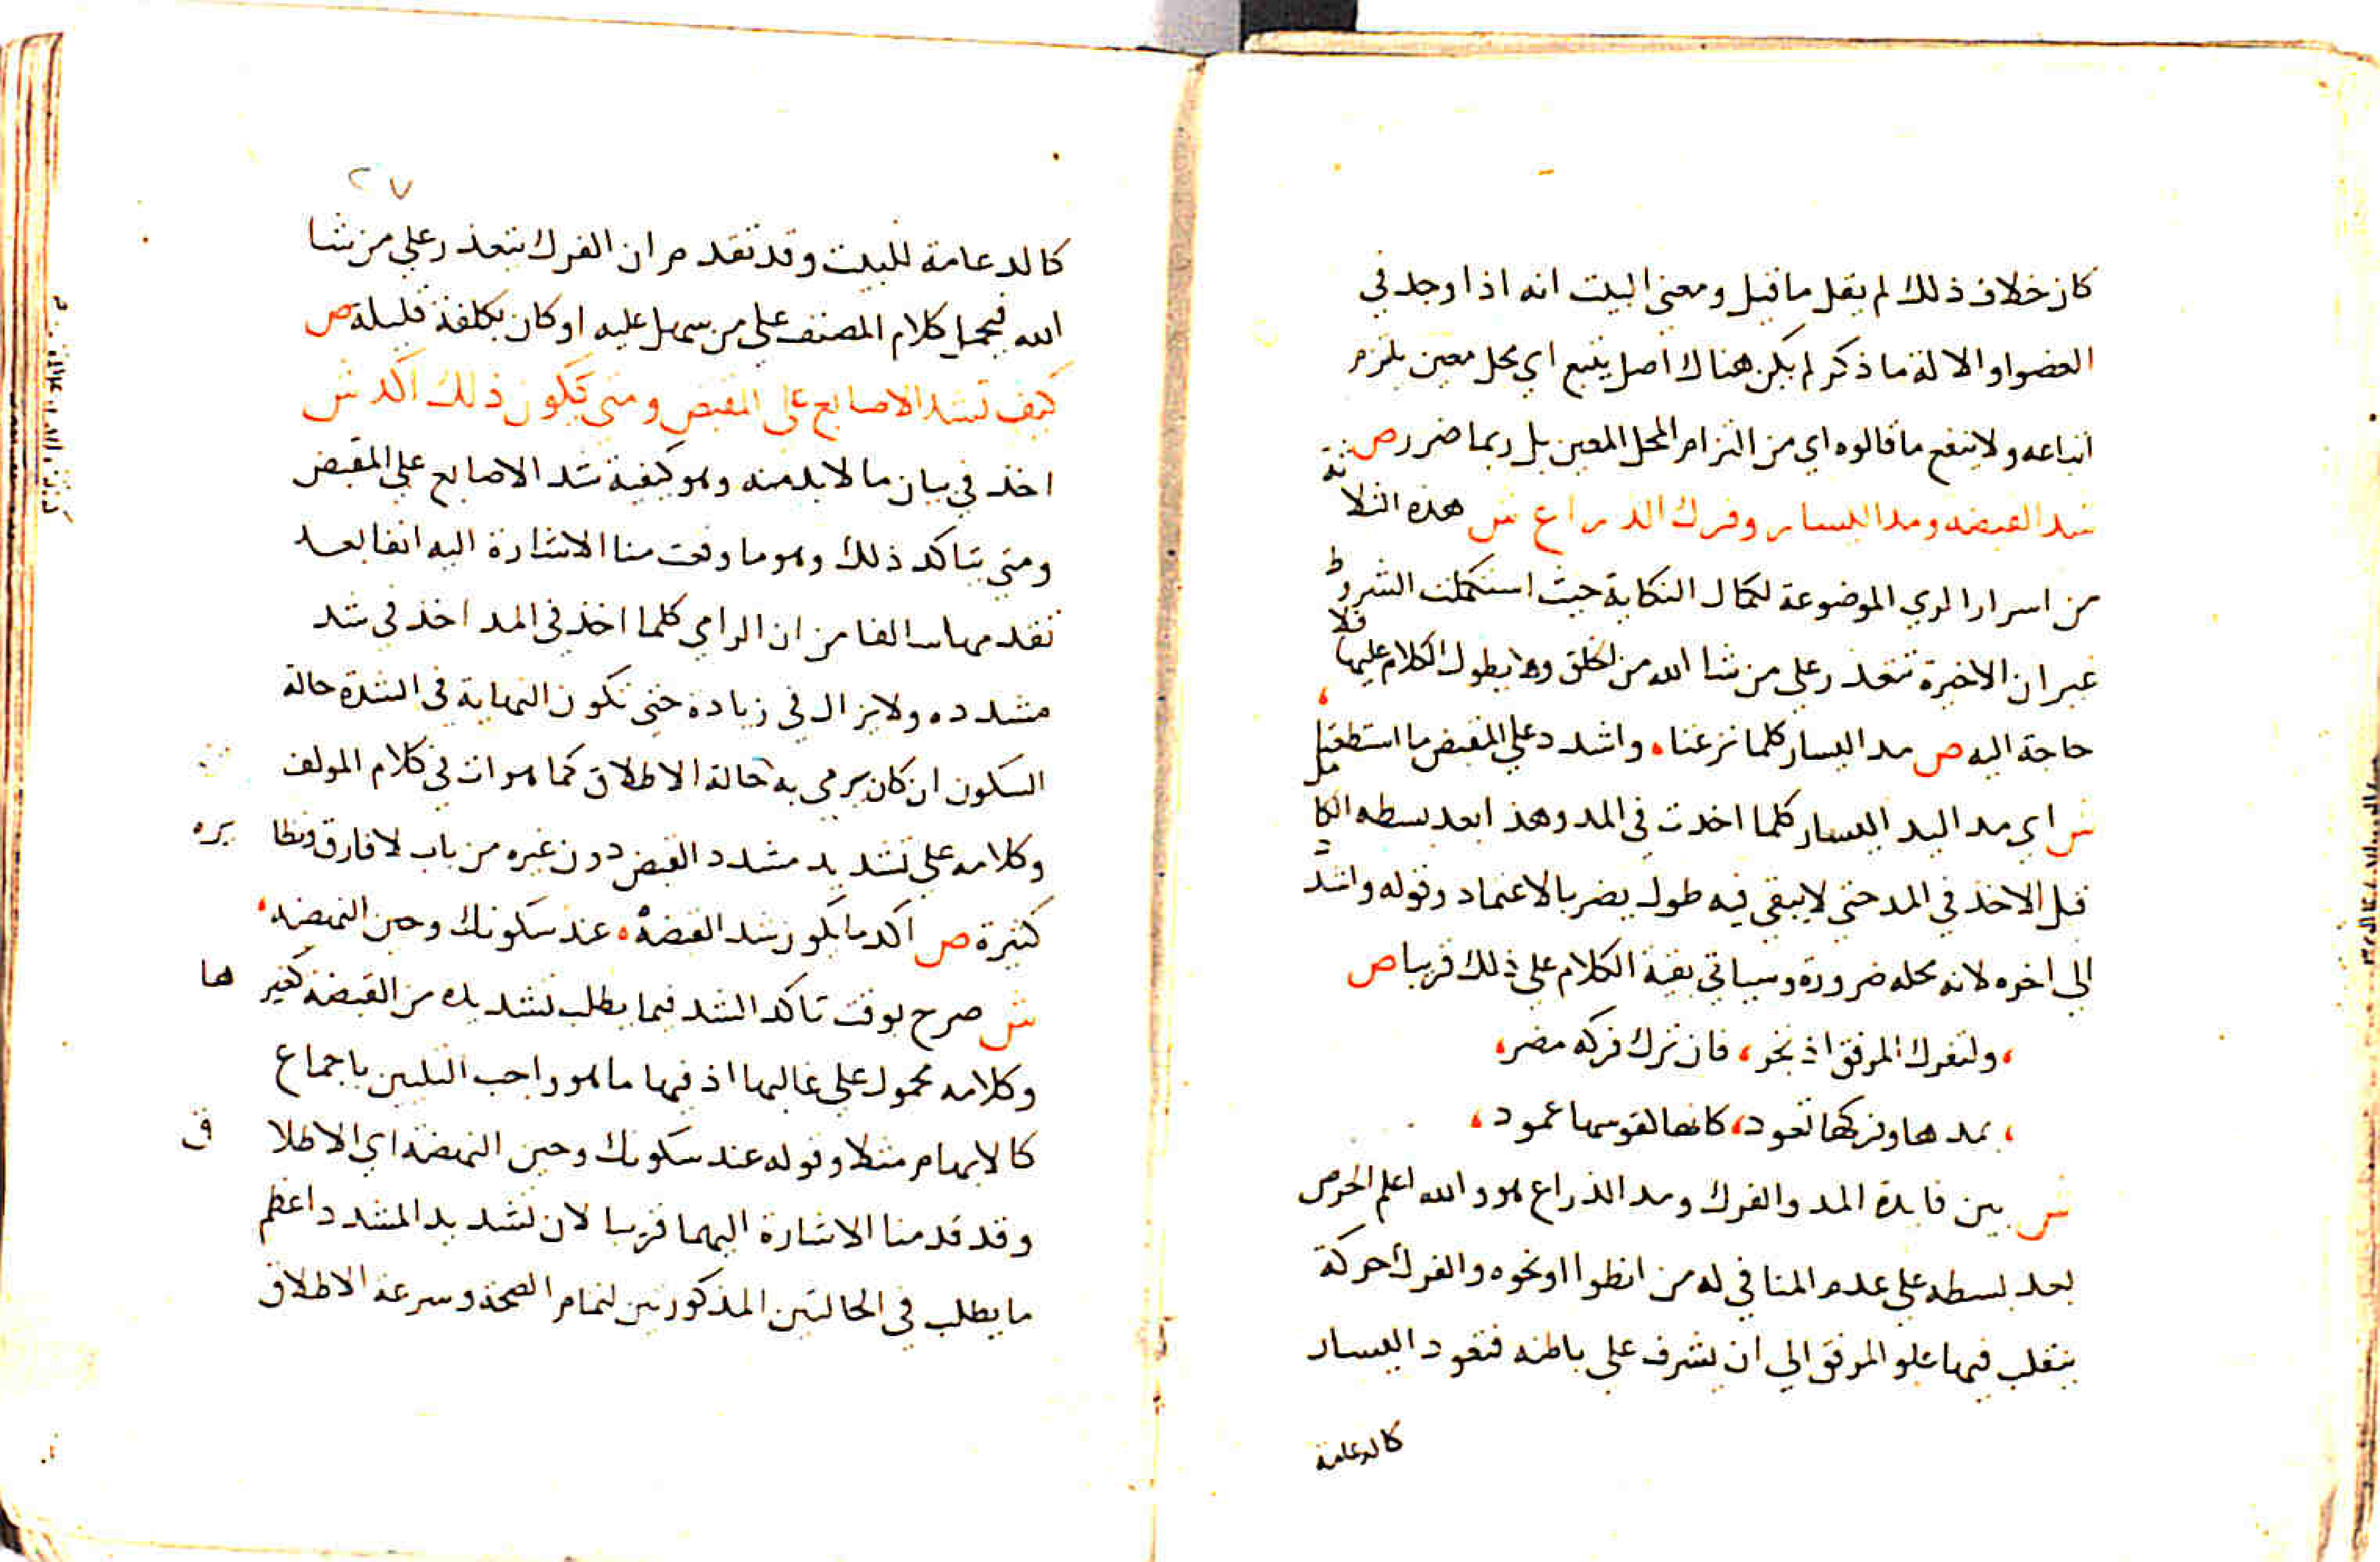 كان خلاف ذلك لم يقل ما قيل ومعنى البيت انه اذا وجد في
العضو او الالة ما ذكر لم يكن هناك اصل يتبع اي محل معين يلزم
اتباعه ولا ينفع ما قالوه اي من التزام المحل المعين بل ربما ضرر ص
شد القبضه ومد اليسار وفرك الذراع ش هذه الثلاثة
من اسرار الرمي الموضوعة لكمال النكاية حيث استكملت الشروط
غير ان الاخيرة تتعذر على من شا الله من الخلق وها يطول الكلام عليها فلا
حاجة اليه ص مد اليسار كلما نزعتا، واشدد علي المقبض ما استطعتا
ش اي مد اليد اليسار كلما اخذت في المد وهذا بعد بسطه الكامل
قبل الاخذ في المد حتى لا يبقى فيه طول يضر بالاعتماد وقوله واشدد
الى اخره لانه محله ضرورة وسياتي بقية الكلام على ذلك قريبا ص
، ولتفرك المرفق اذ نخر، فان ترك فركه مضر،
، بمدها وفركها تعود، كانها لقوسها عمود،
ش بين فايدة المد والفرك ومد الذراع هو والله اعلم الحرص
بعد بسطه على عدم المنافي له من انطوا او نحوه والفرك حركة
ينقلب فيها علو المرفق الى ان يشرف على باطنه فتعود اليسار
كالدعامة
٢٧
كالدعامة للبيت وقد تقدم ان الفرك يتعذر على من شا
الله فيحمل كلام المصنف على من سهل عليه او كان بكلفة قليلة ص
كيف تشد الاصابع على المقبض ومتى يكون ذلك اكد ش
اخذ في بيان ما لا بد منه وهو كيفية شد الاصابع على المقبض
ومتى يتاكد ذلك وهو ما وقعت منا الاشارة اليه انفا بعد
تقدمها سالفا من ان الرامي كلما اخذ في المد اخذ في شد
مشدده ولا يزال في زيادة حتى تكون النهاية في الشدة حالة
السكون ان كان يرمي به حالة الاطلاق كما هو ات في كلام المولف
وكلامه على تشديد مشدد القبض دون غيره من باب لا فارق ونظايره
كثيرة ص اكد ما يكون شد القبضه، عند سكونك وحين النهضه،
ش صرح بوقت تاكد الشد فيما يطلب تشديده من القبضة كغيرها
وكلامه محمول على غالبها اذ فيها ما هو واجب التليين باجماع
كالابهام مثلا وقوله عند سكونك وحين النهضة اي الاطلاق
وقد قدمنا الاشارة اليهما قريبا لان تشديد المشدد اعظم
ما يطلب في الحالتين المذكورتين لتمام الصحة وسرعة الاطلاق